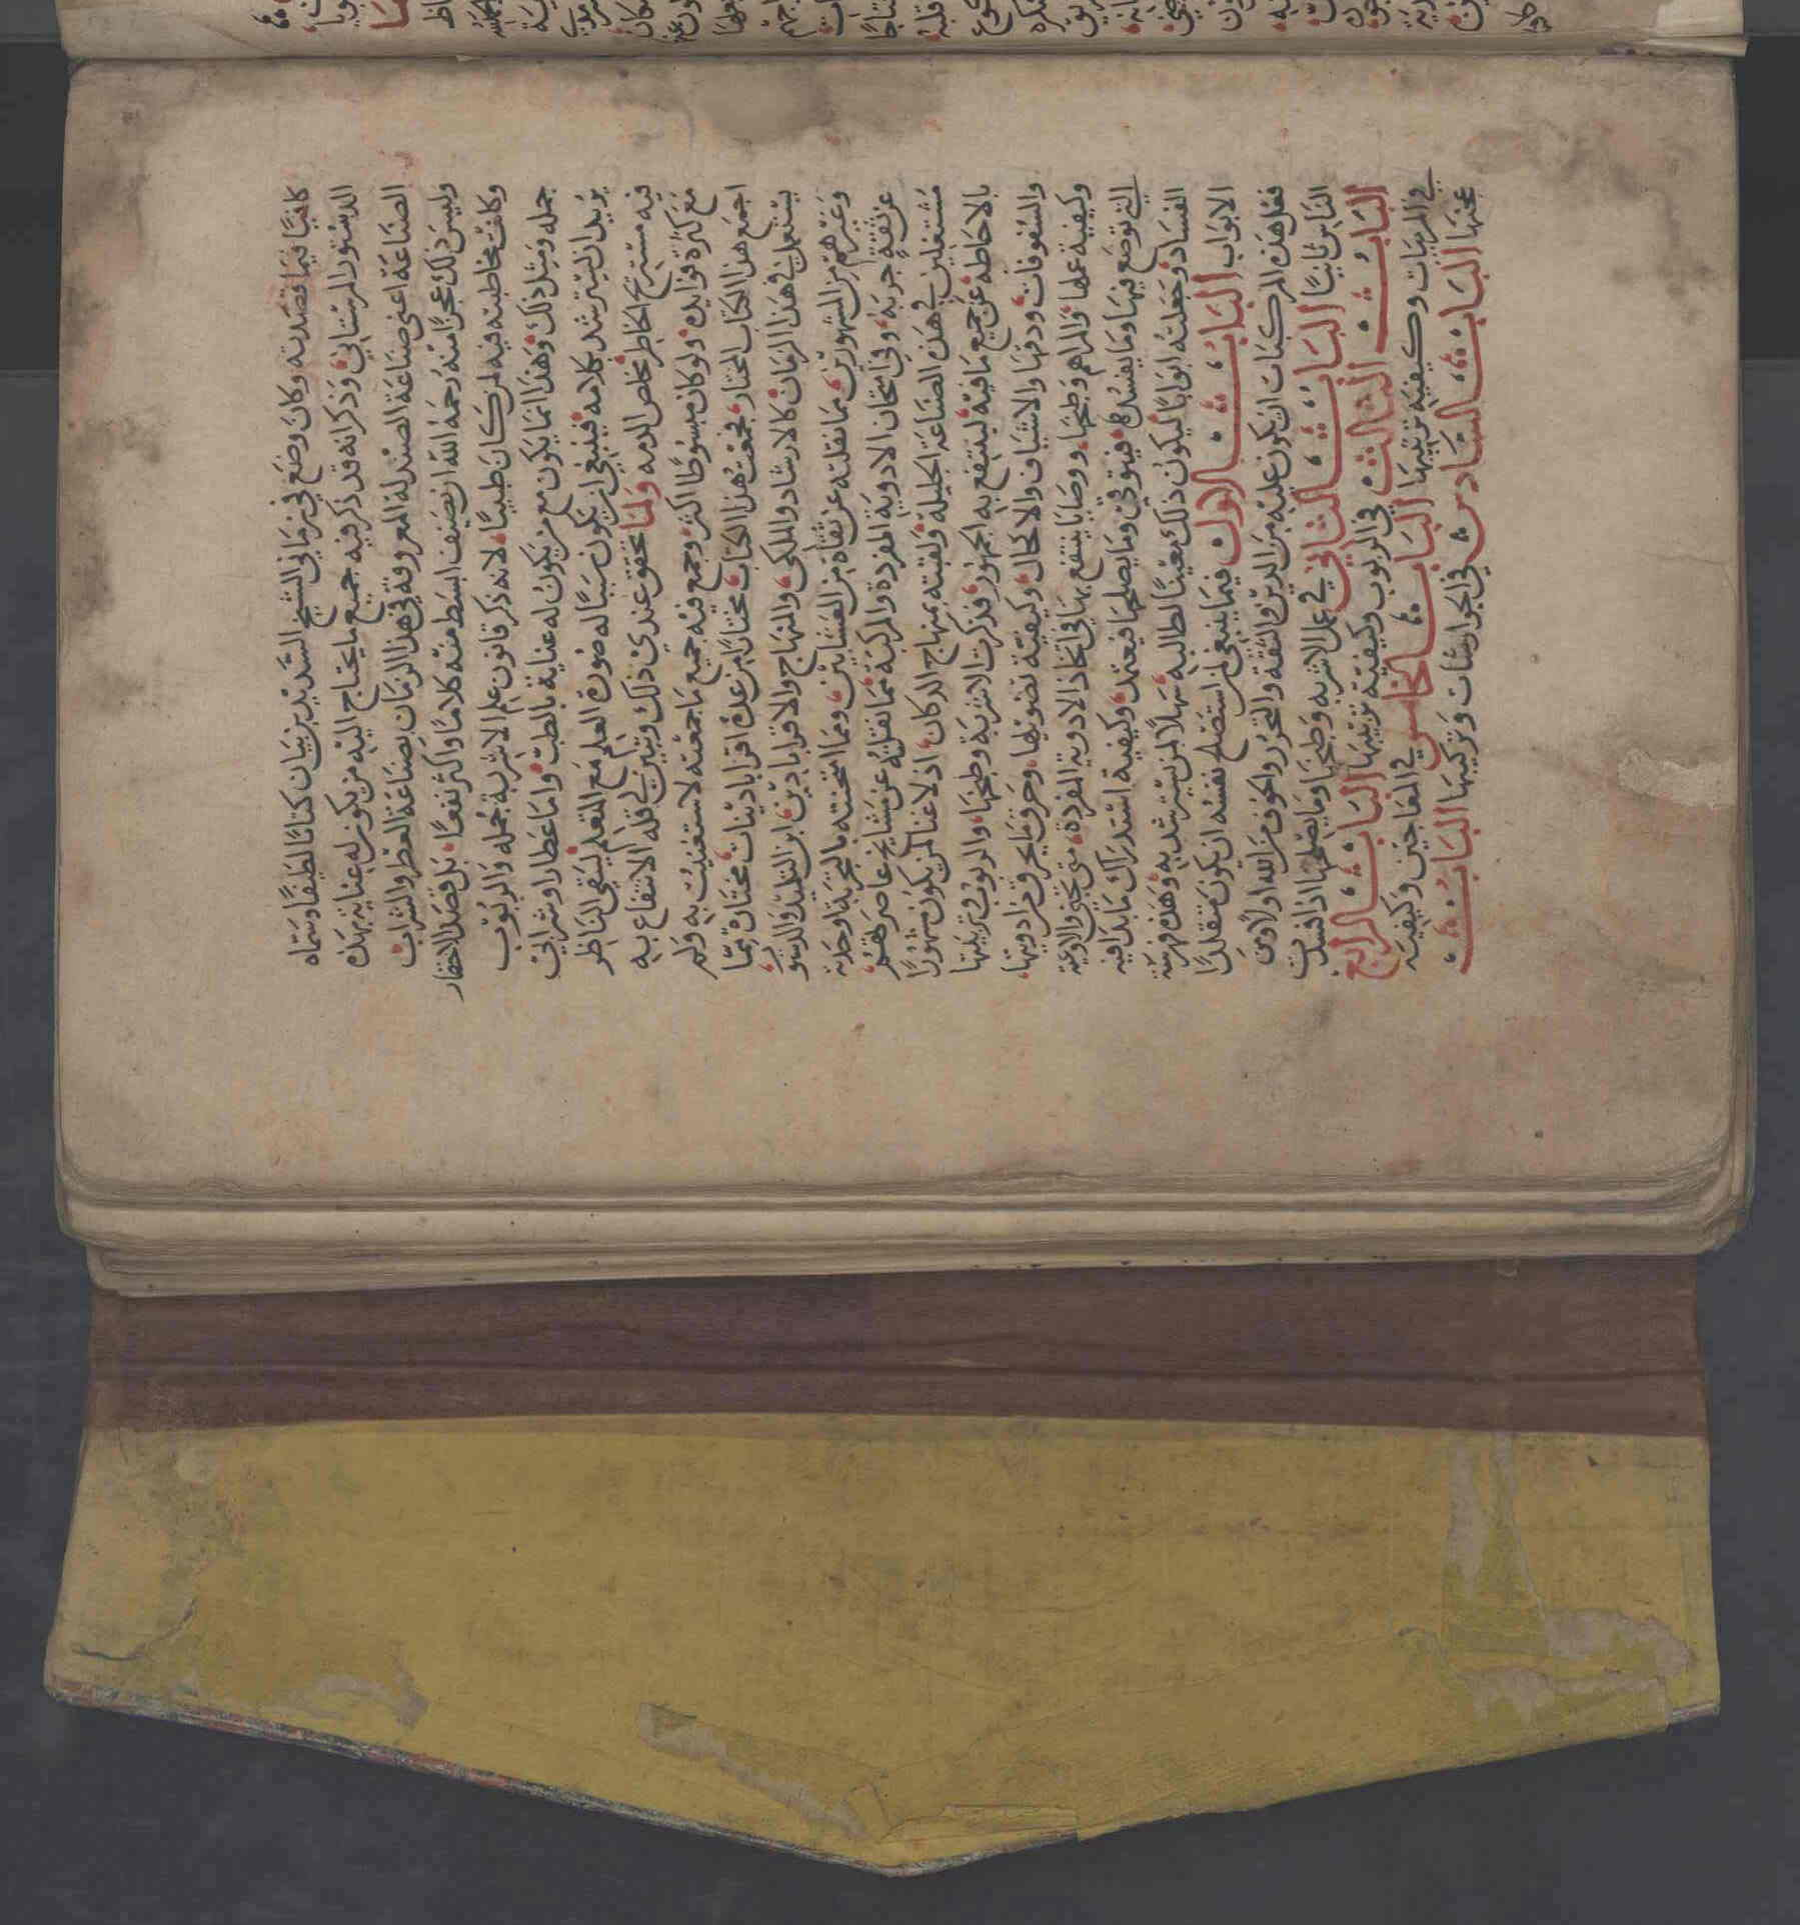 كافيًا فيما قصدته وكان وضع في زماني الشيخ السديد بن بيان كتابًا لطيفًا وسماه
الدستور المرستاني وذكر انه قد ذكر فيه جميع ما يحتاج اليه من يكون له عناية بهذه
الصناعة اعني صناعة الصندلة المعروفة في هذا الزمان بصناعة العطر والشراب
وليس ذلك عجزًا منه رحمه الله ان يصنف ابسط منه كلامًا واكثر نفعًا بل قصد الاختصار
وكانت مخاطبته فيه لمن كان طبيبًا لانه ذكر قانون علم الاشربة جمله والربوب
جمله ومثل ذلك وهذا انما يكون مع من يكون له عناية بالطب واما عطار او شرابي
يريد ان يسترشد بكلامه فينبغي ان يكون سببًا له صورة العلم مع المتعلم ليبقى الناظر
فيه مستريح الخاطر مخلص الذمه ولما تحقق عندي ذلك وتبين لي قلة الانتفاع به
مع كثرة فوايده ولو كان مبسوطًا اكثر وجمع فيه جميع ما جمعته لاستغنيت به ولم
اجمع هذا الكتاب المختار فجمعت هذا الكتاب مختارًا من عدة اقراباذينات مختارة مما
يستعمل في هذا الزمان كالارشاد والملكي والمنهاج والاقراباذين ابن التلميذ والدستور
وغيرهم من المشهورين مما نقلته عن ثقاة من العشابين ومما امتحنته بالتجربة واخذته
عن ثقة جربه وفي امتحان الادوية المفردة والمركبة مما نقلته عن مشايخ عاصرتهم
مشتغلين في هذه الصناعة الجليلة ولقبته بمنهاج الدكان اذ لا غنا لمن يكون مشهورًا
بالاحاطة عن جميع ما فيه لينتفع به الجمهور فذكرت الاشربة وطبخها والربوب وتربيتها
والسفوفات ودقها والاشياف والاكحال وكيفية تصويلها وحرق ما يحرق من ادويتها
وكيفية عملها والمراهم وطبخها ووصايا ينتفع بها في اتخاذ الادوية المفردة متى تجنى والاوعية
التي توضع فيها وما يفسدها فيتوقى وما يصلحها فيعتمد وكيفية استدراك ما بدا فيه
الفساد وجعلته ابوابًا ليكون ذلك معينًا لطالبه سهلًا لمن يسترشد به وهذه فهرسة
الابواب الباب الاول فيما ينبغي لمن استصلح نفسه ان يكون متقلدًا
فعل هذه المركبات ان يكون عليه من الدين والثقة والتحرز والخوف من الله اولًا ومن
الناس ثانيًا الباب الثاني في عمل الاشربه وطبخها وما يصلحها اذا فسدت
الباب الثالث في الربوب وكيفية تربيتها الباب الرابع
في المربيات وكيفيه تربيتها الباب الخامس في المعاجين وكيفية
عجنها الباب السادس في الجوارشات وتركيبها الباب